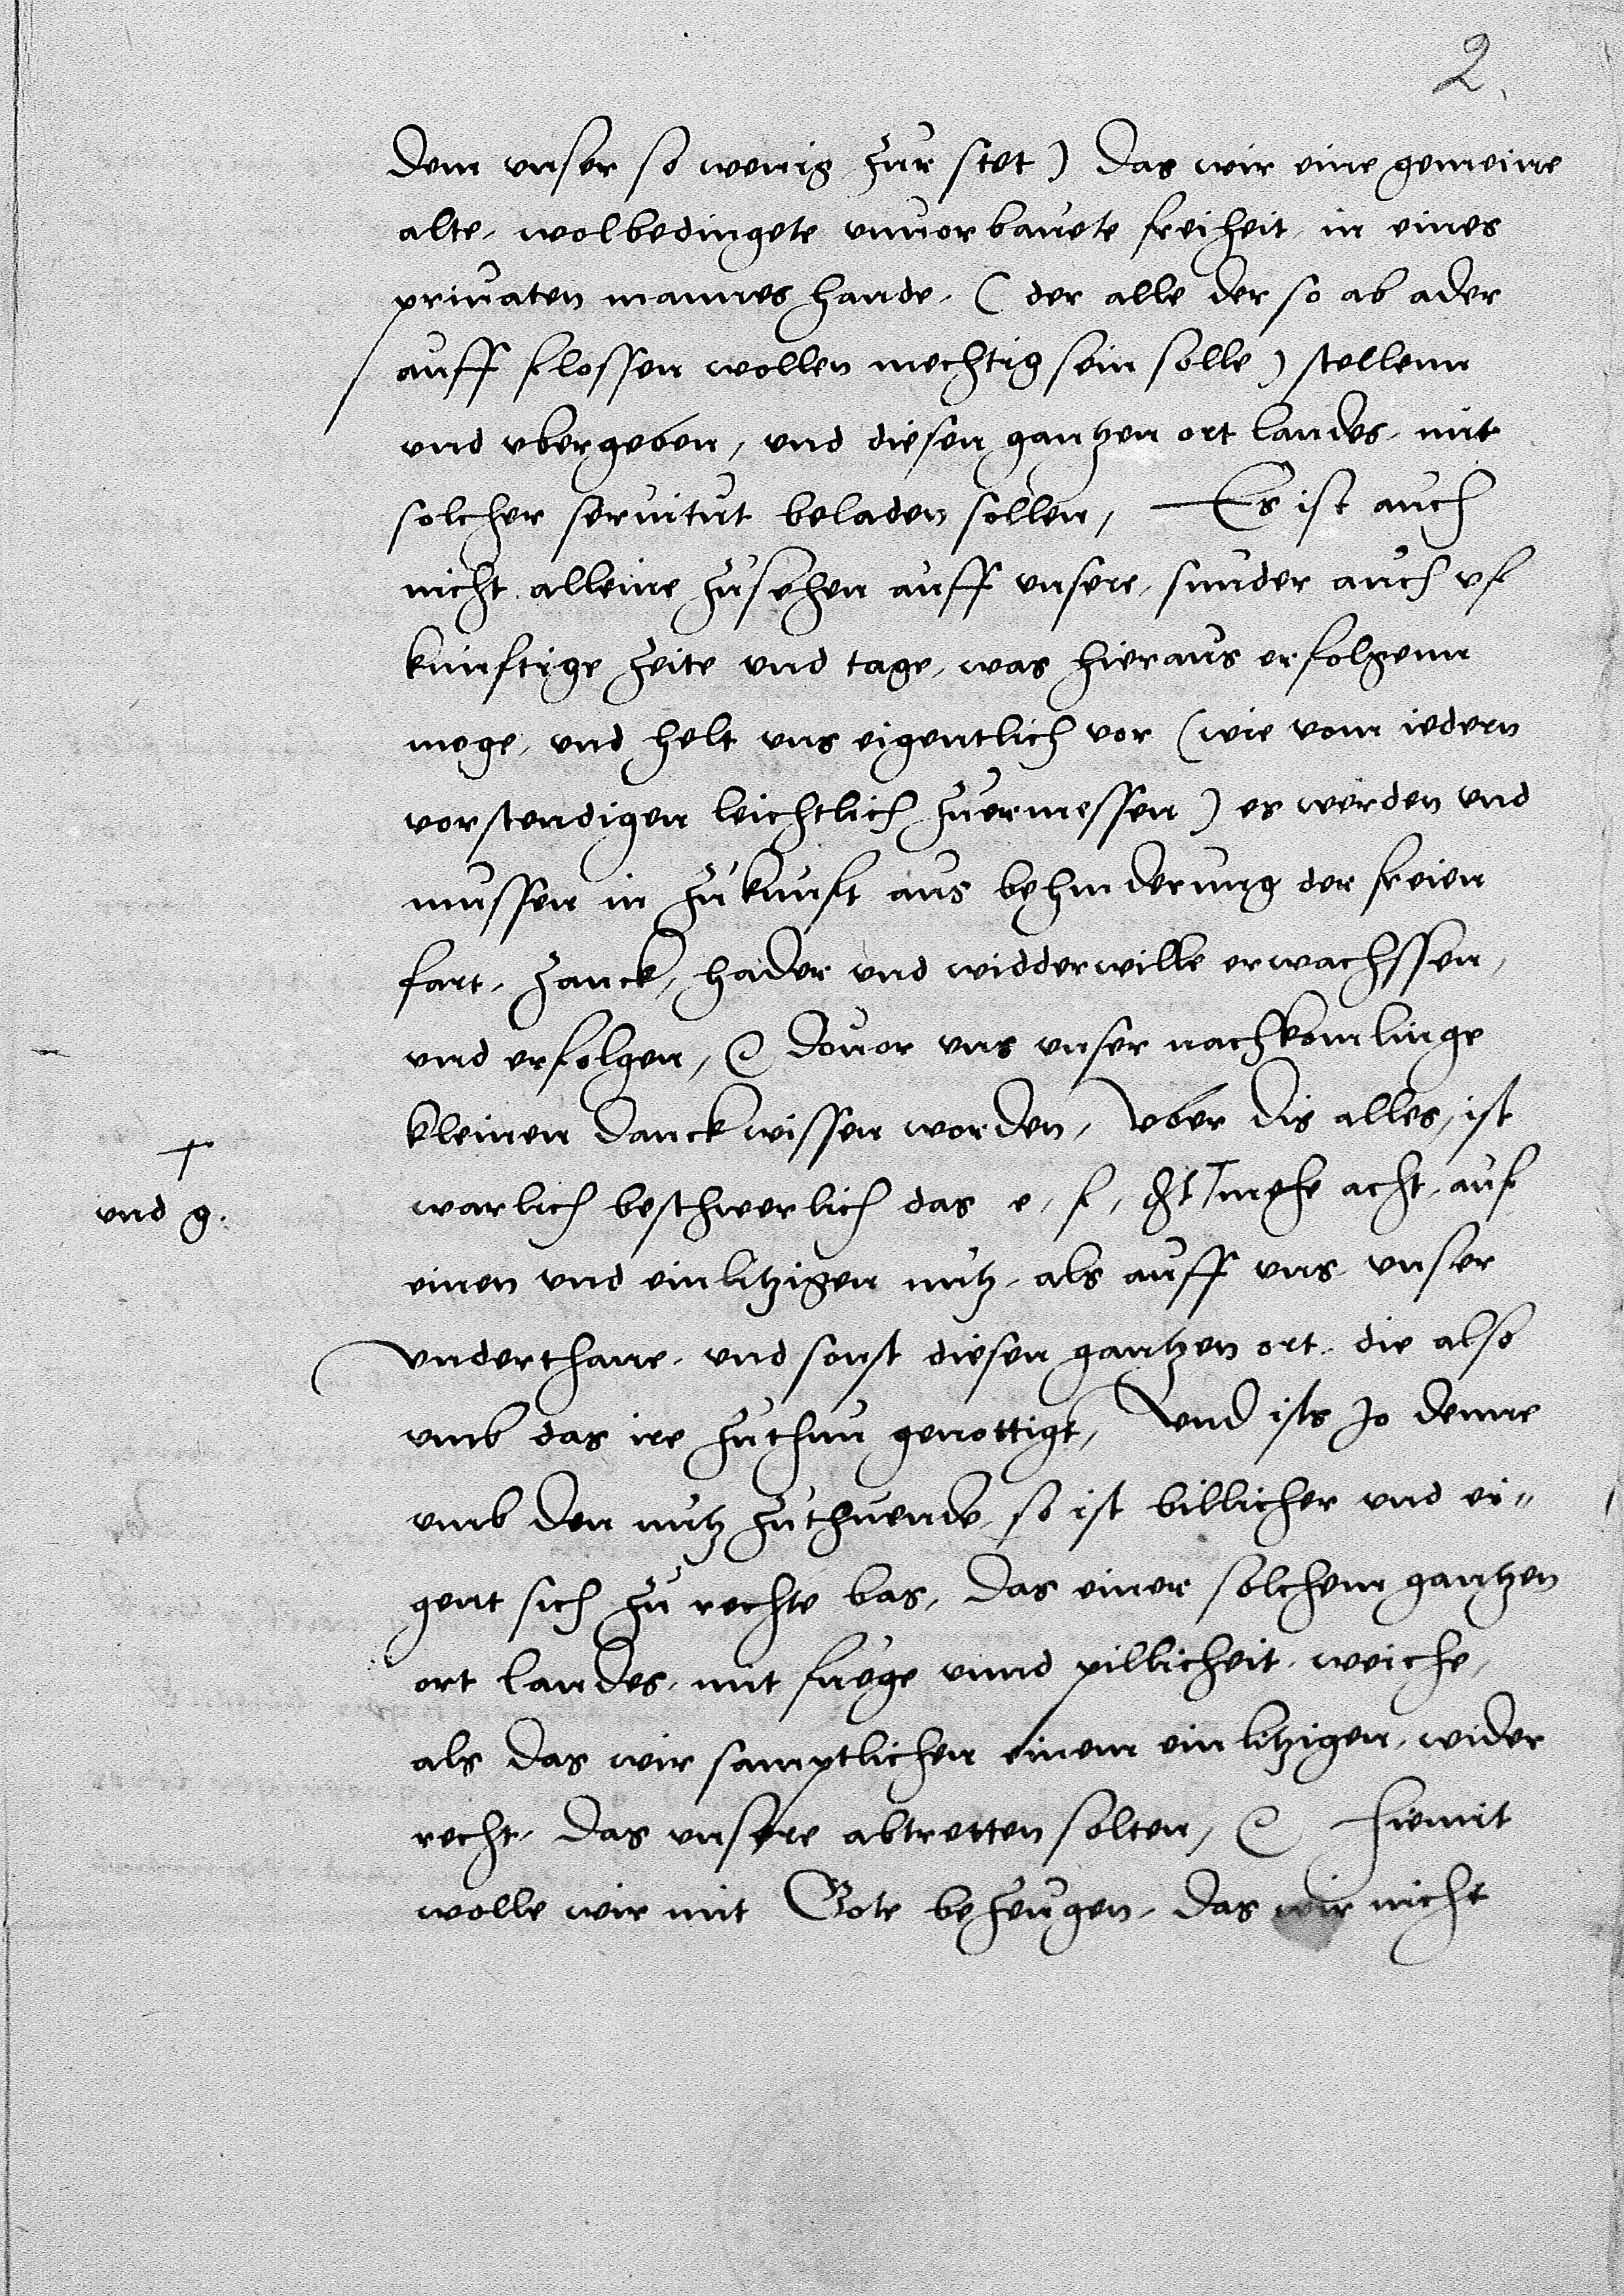 2
dem unser so wenig zur stet) das wir eine gemeine
alte, wolbedingete unvorbauete freiheit, in eines
privaten mannes hande, (der alle der so ab ader
auff flossen wollen mechtig sein solle) stellenn
und ubergeben, und diesen gantzen ort landes, mit
solcher servitut beladen sollen, Es ist auch
nicht alleine zusehen auff unsere, sunder auch uf
kunftige zeite und tage, was hieraus erfolgenn
moge, und helt uns eigentlich vor (wie vom iedern
vorstendigen leichtlich zuermessen) es werden und
mussen in zukunft aus behinderung der freien
fart, zanck, hader und widderwille erwachssen,
und erfolgen, dovor uns unser nachkomlinge
kleinen danck wissen worden, Uber dis alles, ist
warlich beschwerlich das e, f, mehe acht, auf
und g.
einen und einlitzigen nutz, als auff uns, unser
underthane, und sonst diesen gantzen ort, die also
umb das ire zuthun genottigt, Und ists Jo denne
umb den nutz zuthuende, so ist billicher und ei-
gent sich zu rechte bas, das einer solchem gantzen
ort landes, mit fuege unnd pillicheit, weiche,
als das wir samptlichen einem einlitzigen, wider
recht, das unsere abtretten solten, Hiemit
wolle wir mit Gote bezeugen, das wir nicht